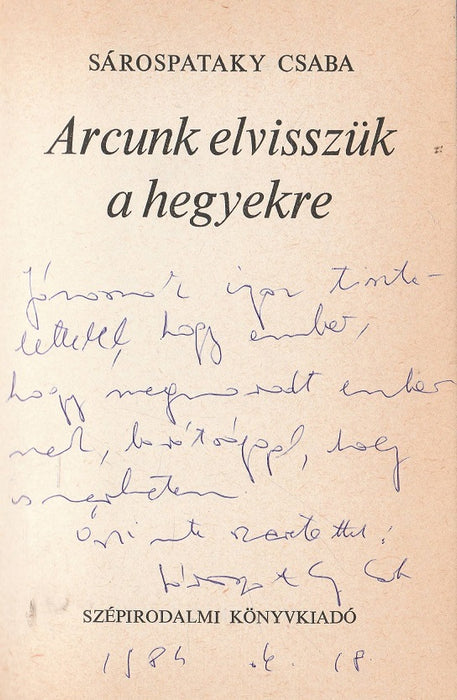 SÁROSPATAKY CSABA
Arcunk elvisszük
a hegyekre
Jánosnak igaz tiszte-
lettel, hogy ember,
hogy megmaradt ember-
nek, barátsággal, hogy
ismerhetem.
Őszinte szeretettel:
Sárospataky Csaba
SZÉPIRODALMI KÖNYVKIADÓ
18.